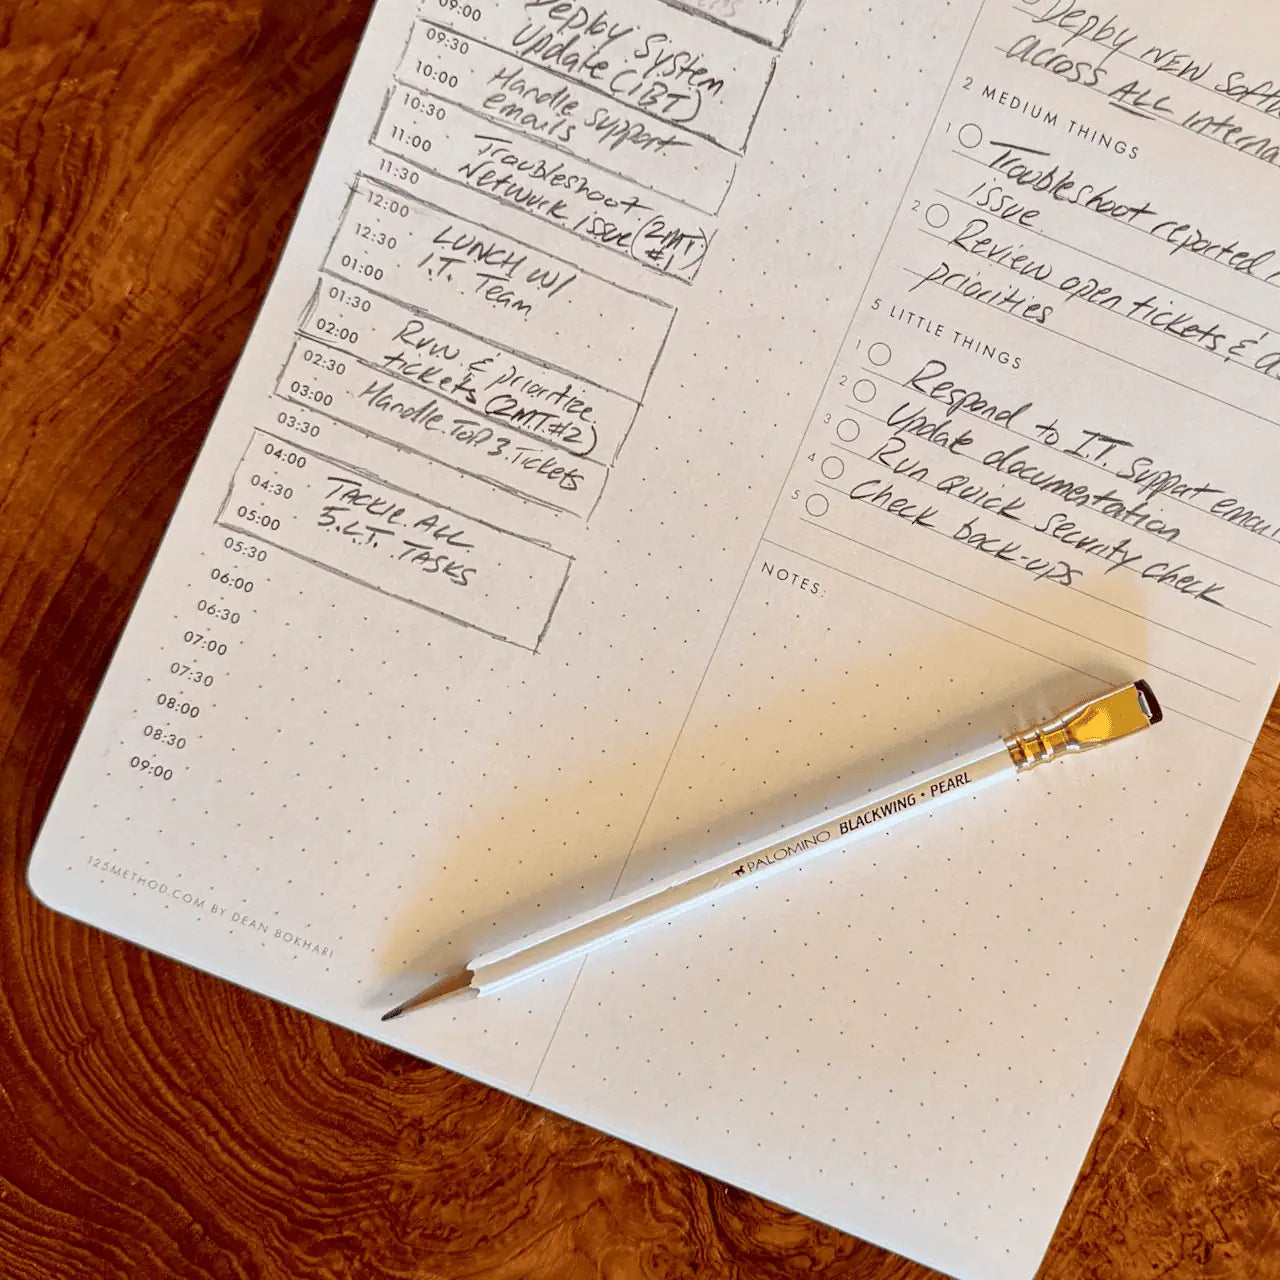 09:00
Deploy System
Update (1BT)
09:30
10:00
Handle support
emails
10:30
11:00
Troubleshoot
Network issue (2MT)
#1
11:30
12:00
12:30
LUNCH W/
I.T. Team
01:00
01:30
02:00
Rvw. & prioritize
tickets (2MT.#2)
02:30
03:00
Handle TOP 3 Tickets
03:30
04:00
04:30
TACKLE ALL
5.L.T. TASKS
05:00
05:30
06:00
06:30
07:00
07:30
08:00
08:30
09:00
125METHOD.COM BY DEAN BOKHARI
Deploy NEW Softw
across ALL interna
2 MEDIUM THINGS
1 Troubleshoot reported
issue.
2 Review open tickets &
priorities
5 LITTLE THINGS
1 Respond to I.T. Support email
2 Update documentation
3 Run quick security check
4 Check back-ups
5
NOTES:
PALOMINO BLACKWING • PEARL